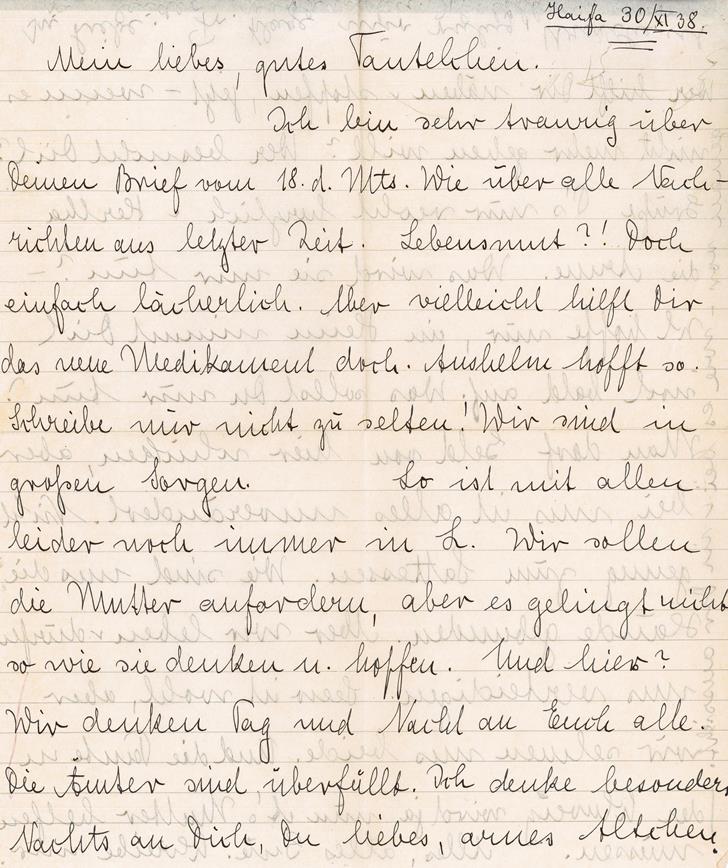 Haifa 30/XI 38.
Mein liebes, gutes Tantelchen.
Ich bin sehr traurig über
Deinen Brief vom 18. d. Mts. Wie über alle Nach-
richten aus letzter Zeit. Lebensmut?! Doch
einfach lächerlich. Aber vielleicht hilft Dir
das neue Medikament doch. Anshelm hofft so.
Schreibe nur nicht zu selten! Wir sind in
großen Sorgen. So ist mit allen
leider noch immer in L. Wir sollen
die Mutter anfordern, aber es gelingt nicht
so wie sie denken u. hoffen. Und hier?
Wir denken Tag und Nacht an Euch alle.
Die Ämter sind überfüllt. Ich denke besonders
Nachts an Dich, Du liebes, armes Altchen.